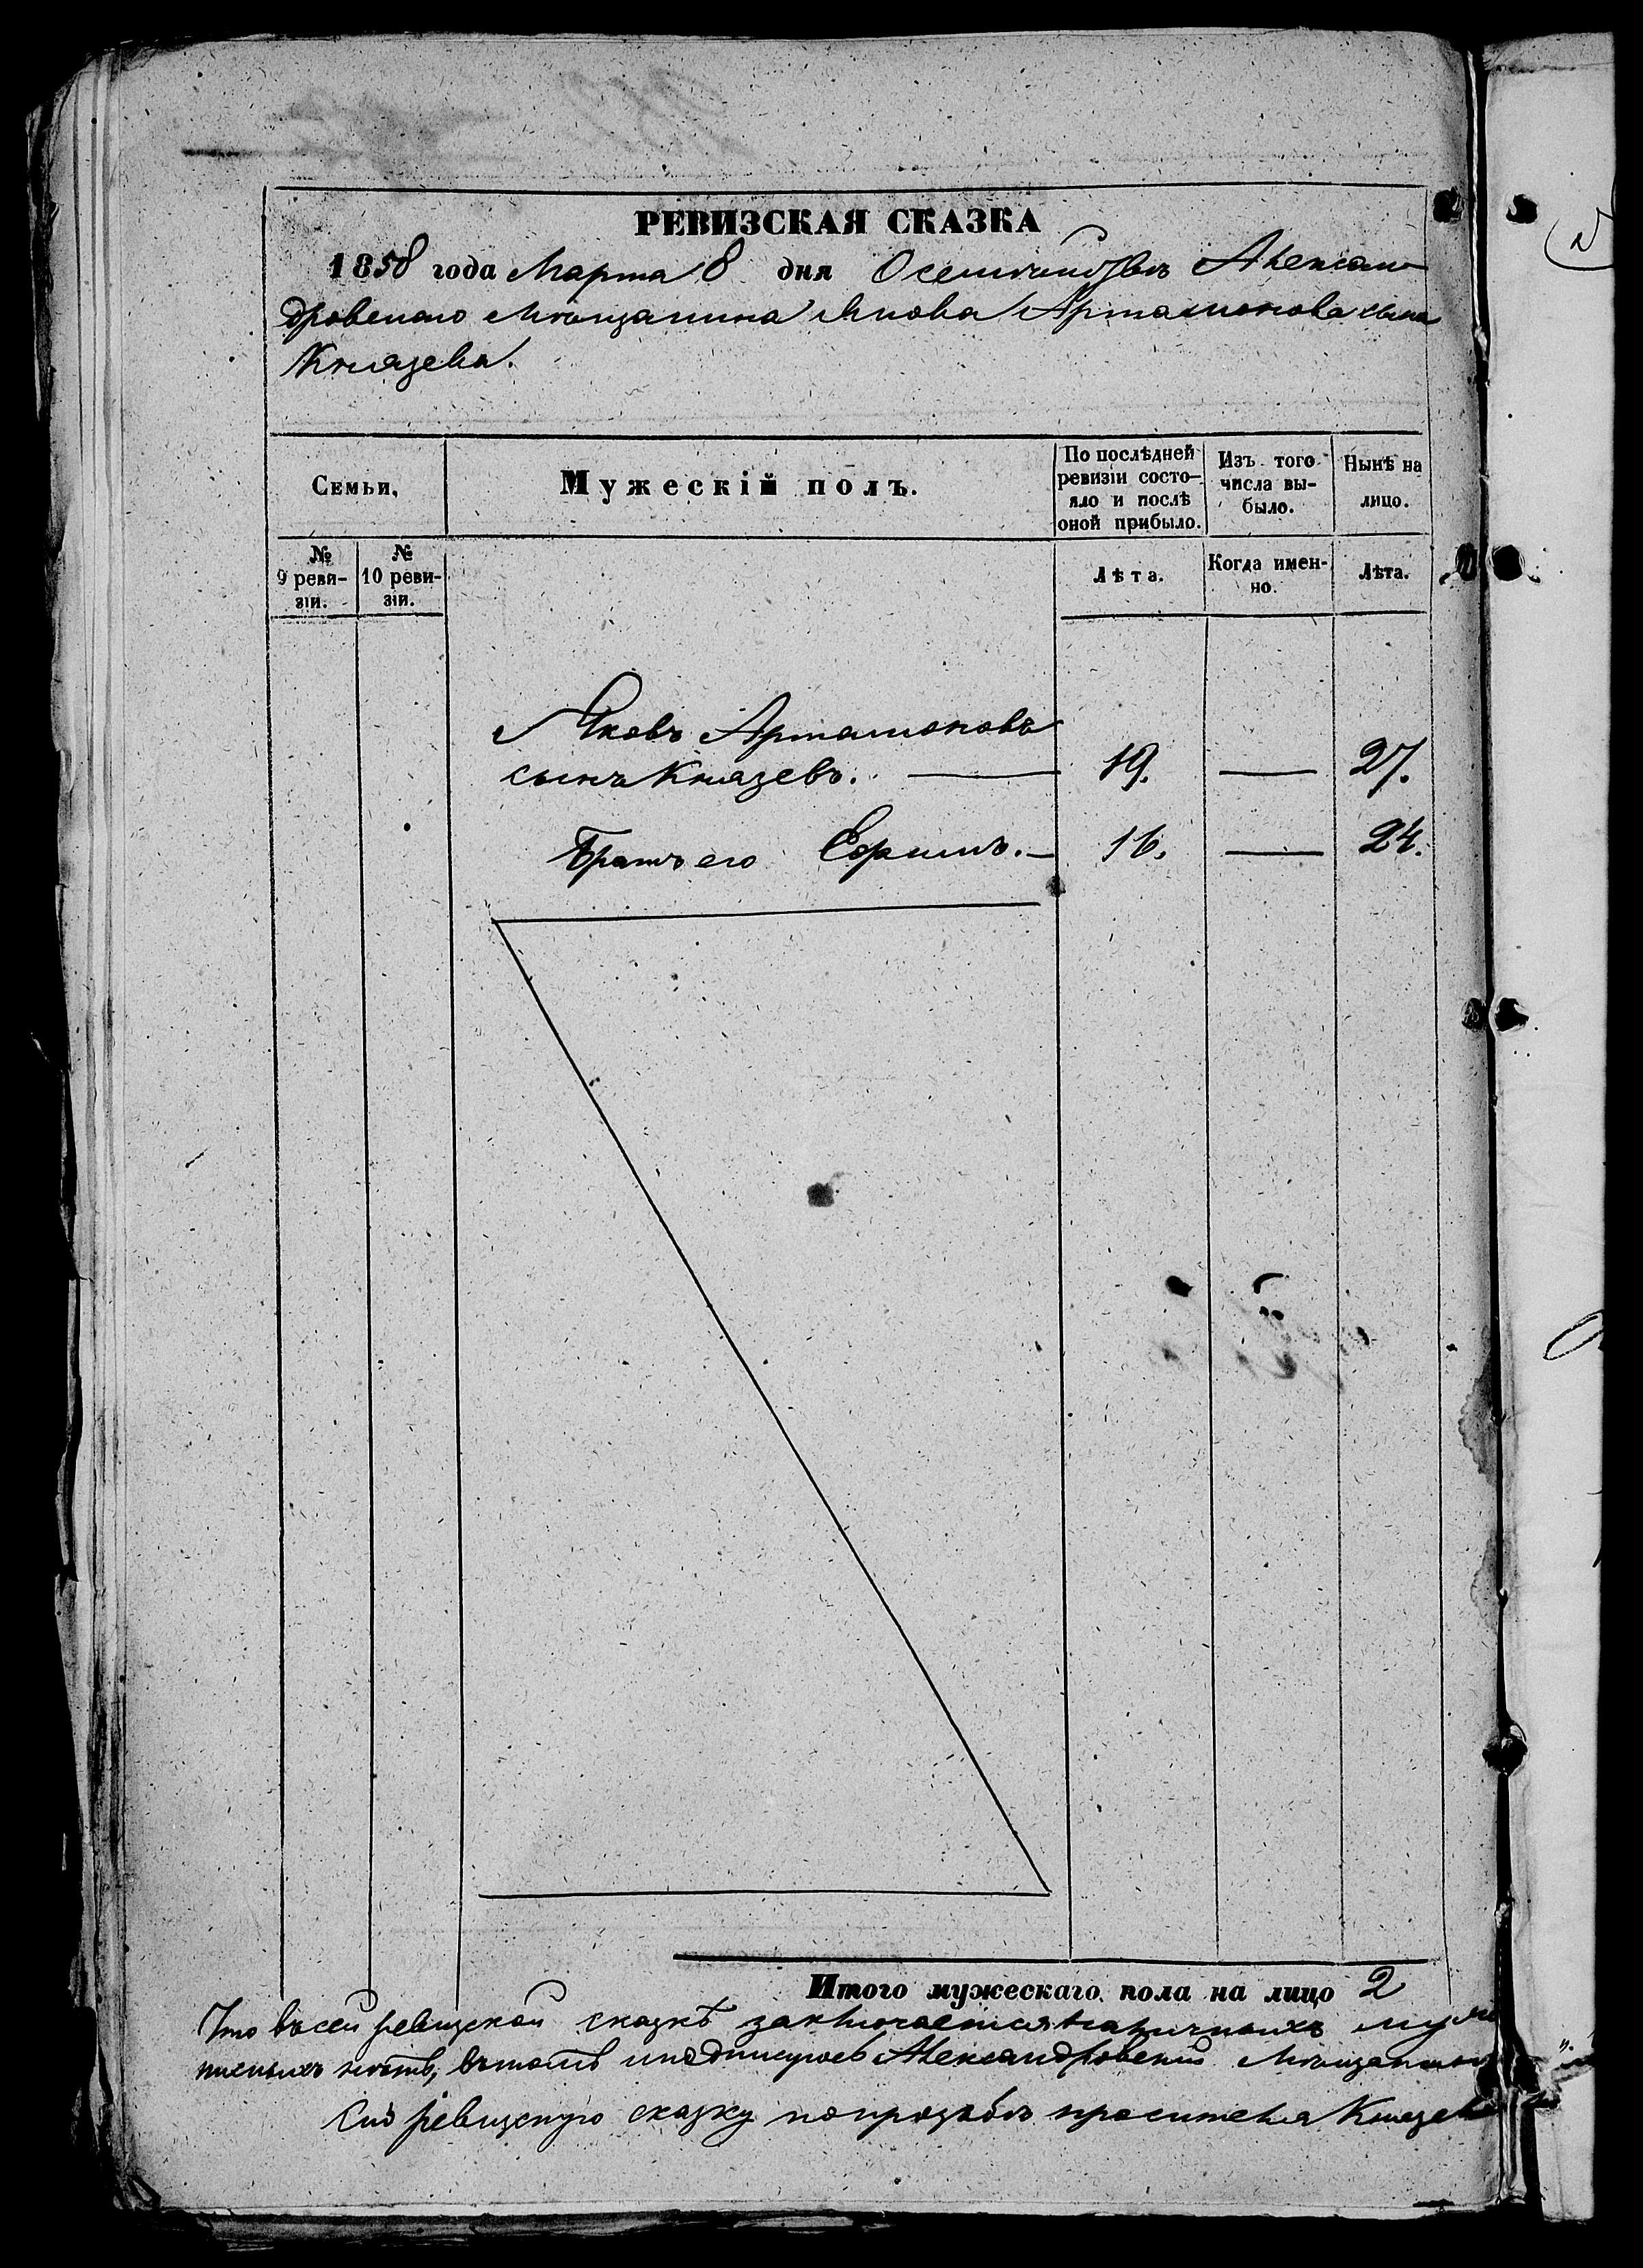 РЕВИЗСКАЯ СКАЗКА
1858 года Марта 8 дня О семействѣ Алексан-
дровскаго Мѣщанина Якова Артамонова сына
Князева.
Семьи,
Мужескій полъ.
По послѣдней ревизіи состо-
яло и послѣ
оной прибыло.
Изъ того
числа вы-
было.
Нынѣ на
лицо.
№
9 реви-
зіи.
№
10 реви-
зіи.
Лѣта.
Когда имен-
но.
Лѣта.
Яковъ Артамоновъ
сынъ Князевъ. 19. — 27.
Братъ его Ефимъ. — 16. — 24.
Итого мужескаго пола на лицо 2
Что въ сей ревизской сказкѣ заключается наличныхъ
нѣтъ, въ томъ и подписуюсь Александровскій Мѣщанинъ
Сию ревизскую сказку по прозьбѣ просителя Князева